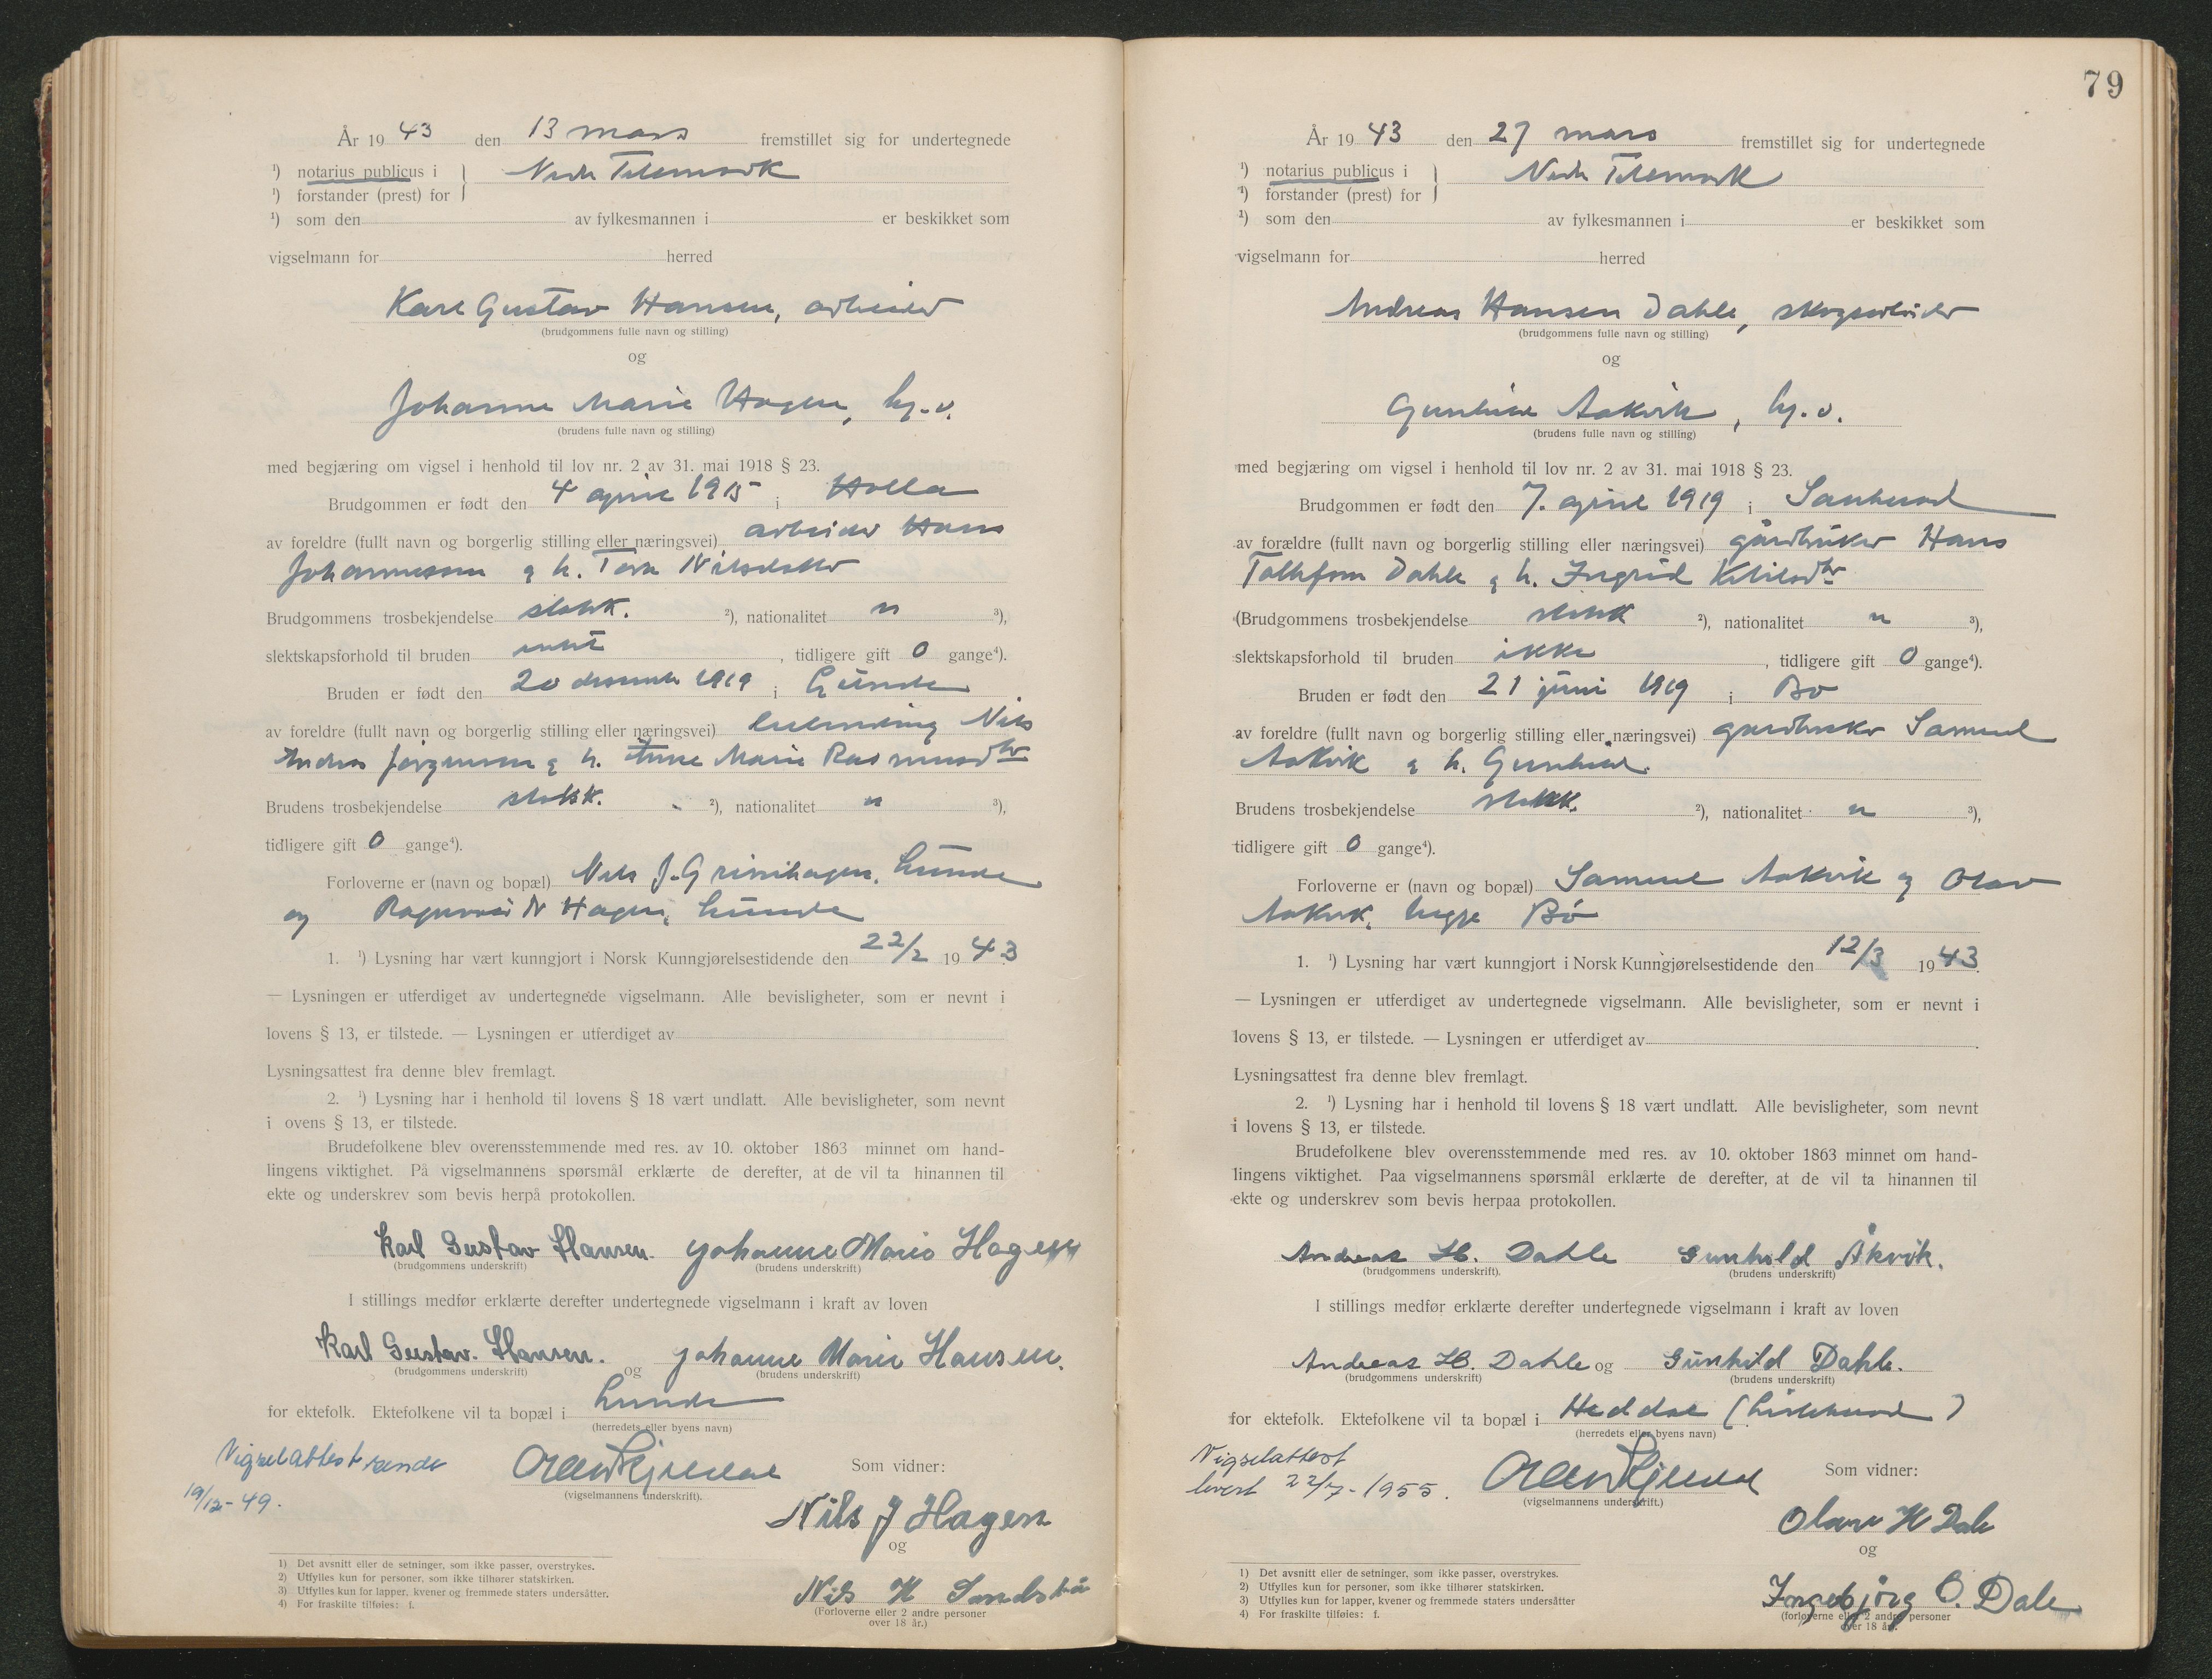 År 19 43 den 13 mars fremstillet sig for undertegnede
¹) notarius publicus i } Nedre Telemark
¹) forstander (prest) for
¹) som den av fylkesmannen i er beskikket som
vigselmann for herred
Karl Gustav Hansen, arbeider
(brudgommens fulle navn og stilling)
og
Johanne Marie Hagen, hg. v.
(brudens fulle navn og stilling)
med begjæring om vigsel i henhold til lov nr. 2 av 31. mai 1918 § 23.
Brudgommen er født den 4 april 1915 i Holla
av foreldre (fullt navn og borgerlig stilling eller næringsvei) arbeider Hans
Johannessen og h. Tora Nilsdatter
Brudgommens trosbekjendelse statsk. ²), nationalitet n ³),
slektskapsforhold til bruden intet, tidligere gift 0 gange⁴).
Bruden er født den 20 desember 1919 i Lunde
av foreldre (fullt navn og borgerlig stilling eller næringsvei) Nils
Andreas Jørgensen og h. Anne Marie Rasmusdtr
Brudens trosbekjendelse statsk. ²), nationalitet n ³),
tidligere gift 0 gange⁴).
Forloverne er (navn og bopæl) Nils J. Grinihagen, Lunde
og Ragnvald N Hagen, Lunde
1. ¹) Lysning har vært kunngjort i Norsk Kunngjørelsestidende den 22/2 19 43
— Lysningen er utferdiget av undertegnede vigselmann. Alle bevisligheter, som er nevnt i
lovens § 13, er tilstede. — Lysningen er utferdiget av
Lysningsattest fra denne blev fremlagt.
2. ¹) Lysning har i henhold til lovens § 18 vært undlatt. Alle bevisligheter, som nevnt
i ovens § 13, er tilstede.
Brudefolkene blev overensstemmende med res. av 10. oktober 1863 minnet om hand-
lingens viktighet. På vigselmannens spørsmål erklærte de derefter, at de vil ta hinannen til
ekte og underskrev som bevis herpå protokollen.
Karl Gustav Hansen. Johanne Marie Hagen
(brudgommens underskrift) (brudens underskrift)
I stillings medfør erklærte derefter undertegnede vigselmann i kraft av loven
Karl Gustav. Hansen. og Johanne Marie Hansen.
(brudgommens underskrift) (brudens underskrift)
for ektefolk. Ektefolkene vil ta bopæl i Lunde
(herredets eller byens navn)
Vigselattest sendt
19/12-49.
(vigselmannens underskrift).
Som vidner:
Nils J Hagen
og
Nils H Sandstå
(Forloverne eller 2 andre personer
over 18 år.)
1) Det avsnitt eller de setninger, som ikke passer, overstrykes.
2) Utfylles kun for personer, som ikke tilhører statskirken.
3) Utfylles kun for lapper, kvener og fremmede staters undersåtter.
4) For fraskilte tilføies: f.
79
År 19 43 den 27 mars fremstillet sig for undertegnede
¹) notarius publicus i } Nedre Telemark
¹) forstander (prest) for
¹) som den av fylkesmannen i er beskikket som
vigselmann for herred
Andreas Hansen Dahle, skogsarbeider
(brudgommens fulle navn og stilling)
og
Gunhild Aakvik, hg. v.
(brudens fulle navn og stilling)
med begjæring om vigsel i henhold til lov nr. 2 av 31. mai 1918 § 23.
Brudgommen er født den 7. april 1919 i Sauherad
av forældre (fullt navn og borgerlig stilling eller næringsvei) gårdbruker Hans
Tollefsen Dahle og h. Ingrid Kittilsdtr
(Brudgommens trosbekjendelse statsk ²), nationalitet n ³),
slektskapsforhold til bruden ikke, tidligere gift 0 gange⁴).
Bruden er født den 21 juni 1919 i Bø
av foreldre (fullt navn og borgerlig stilling eller næringsvei) gardbruker Samuel
Aakvik og h. Gunhild.
Brudens trosbekjendelse statsk. ²), nationalitet n ³),
tidligere gift 0 gange⁴).
Forloverne er (navn og bopæl) Samuel Aakvik og Olav
Aakvik, begge Bø
1. ¹) Lysning har vært kunngjort i Norsk Kunngjørelsestidende den 12/3 19 43.
— Lysningen er utferdiget av undertegnede vigselmann. Alle bevisligheter, som er nevnt i
lovens § 13, er tilstede. — Lysningen er utferdiget av
Lysningsattest fra denne blev fremlagt.
2. ¹) Lysning har i henhold til lovens § 18 vært undlatt. Alle bevisligheter, som nevnt
i lovens § 13, er tilstede.
Brudefolkene blev overensstemmende med res. av 10. oktober 1863 minnet om hand-
lingens viktighet. Paa vigselmannens spørsmål erklærte de derefter, at de vil ta hinannen til
ekte og underskrev som bevis herpaa protokollen.
Andreas H. Dahle Gunhild Åkvik.
(brudgommens underskrift). (brudens underskrift)
I stillings medfør erklærte derefter undertegnede vigselmann i kraft av loven
Andreas H. Dahle og Gunhild Dahle.
(brudgommens underskrift) (brudens underskrift)
for ektefolk. Ektefolkene vil ta bopæl i Heddal (Lilleherad)
(herredets eller byens navn)
Vigselattest
levert 22/7-1955.
(vigselmannens underskrift.)
Som vidner:
Olav H Dale
og
Ingebjörg O. Dale
(forloverne eller 2 andre personer
over 18 år.
1) Det avsnitt eller de setninger, som ikke passer, overstrykes.
2) Utfylles kun for personer, som ikke tilhører statskirken.
3) Utfylles kun for lapper, kvener og fremmede staters undersåtter
4) For fraskilte tilføies: f.